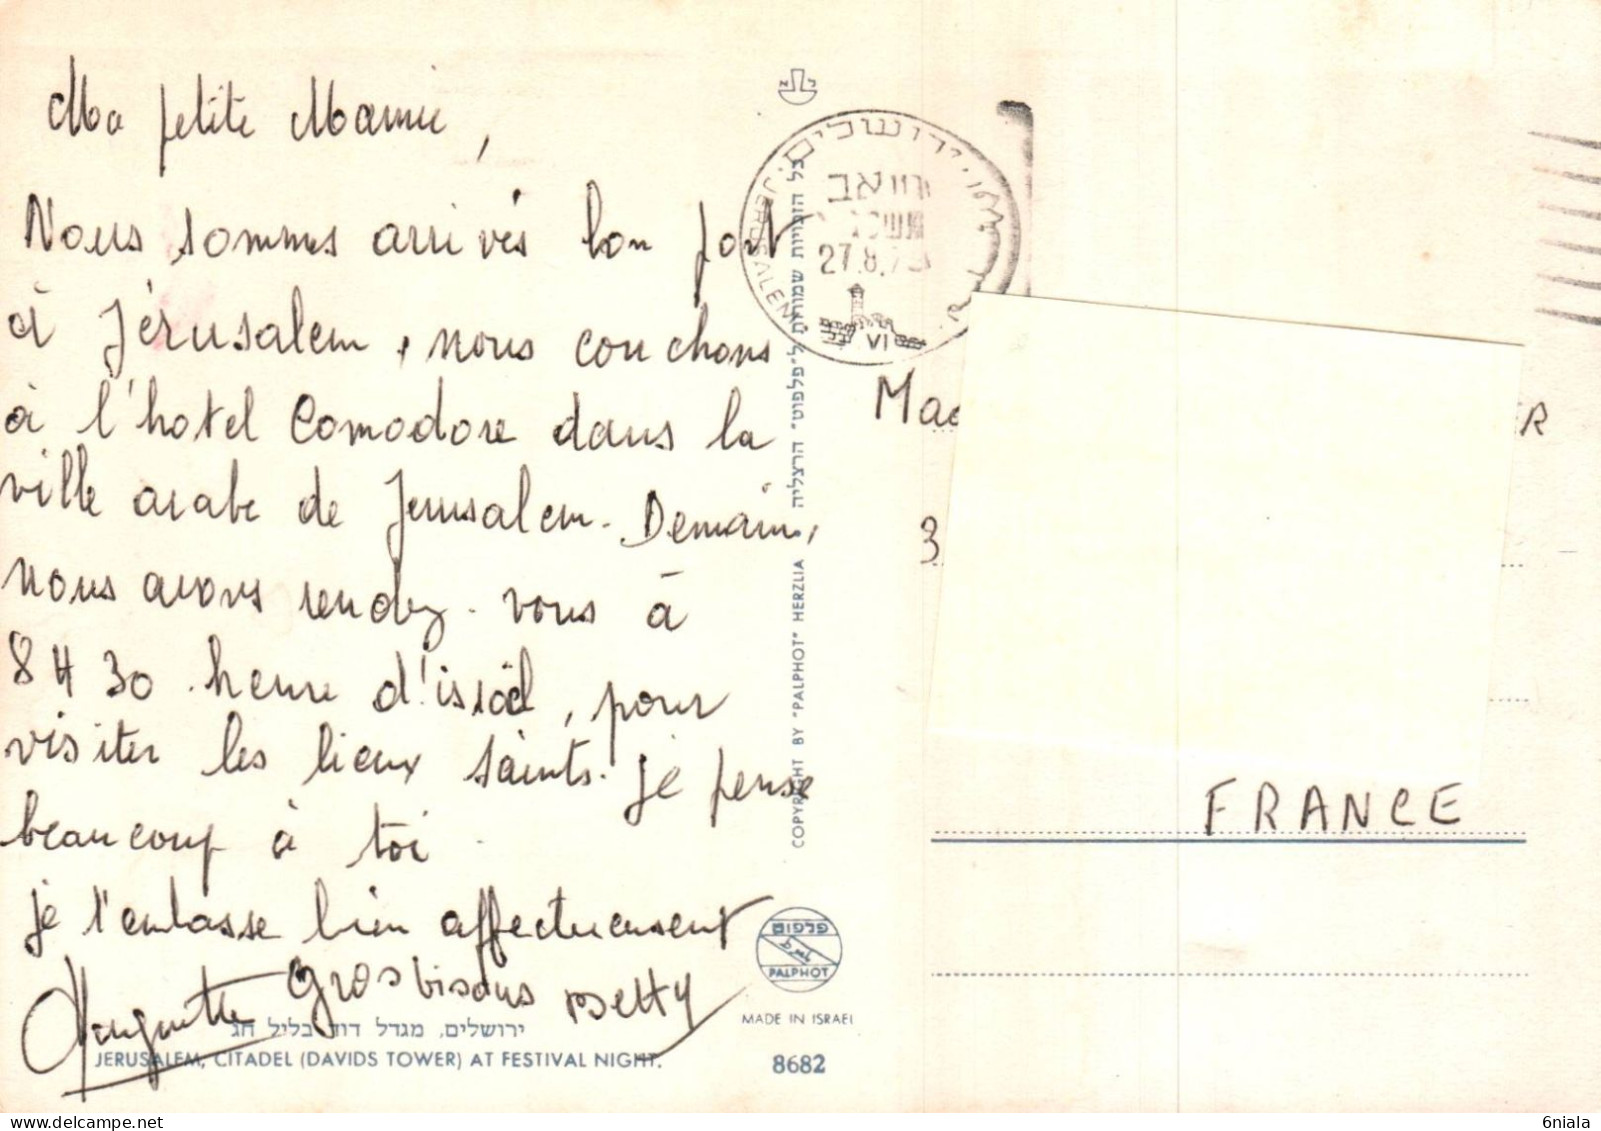 Ma petite Mamie,
Nous sommes arrivés bon port
à Jérusalem, nous couchons
à l'hotel Comodore dans la
ville arabe de Jerusalem. Demain,
nous avons rendez-vous à
8 H 30 heure d'israël, pour
visiter les lieux saints. je pense
beaucoup à toi.
je t'embasse bien affectueusement
Huguette Grosbisous Betty
ירושלים, מגדל דוד בליל חג
JERUSALEM, CITADEL (DAVIDS TOWER) AT FESTIVAL NIGHT.
כל הזכויות שמורות ל"פלפוט" הרצליה
COPYRIGHT BY "PALPHOT" HERZLIA
ירושלים
JERUSALEM
27.8.7
VI
פלפוט
PALPHOT
MADE IN ISRAEL
8682
Mad
ER
3
FRANCE
delcampe.net
6niala